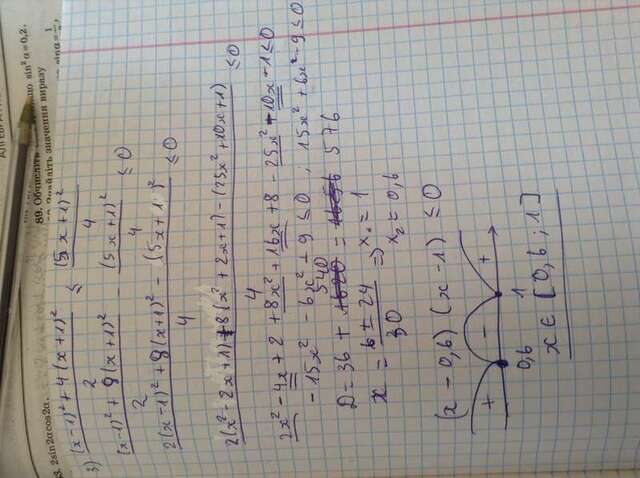 АЛГЕБРА
53. 2sin2αcos2α.
89. Обчисліть sin²α=0,2.
Знайдіть значення виразу
3) ((x-1)² + 4(x+1)²)/2 ≤ (5x+1)²/4
((x-1)² + 8(x+1)²)/2 - (5x+1)²/4 ≤0
(2(x-1)² + 8(x+1)² - (5x+1)²)/4 ≤0
(2(x²-2x+1)+8(x²+2x+1)-(25x²+10x+1))/4 ≤0
2x² - 4x + 2 + 8x² + 16x + 8 - 25x² - 10x - 1 ≤0
- 15x² - 6x² + 9 ≤0 ; 15x² + 6x² - 9 ≤0
540
D = 36 + 1620 = 1656 576
x = (6 ± 24)/30 ⇒ x₁ = 1
x₂ = 0,6
(x - 0,6) (x - 1) ≤0
+ - +
0,6 1
x ∈ [0,6 ; 1]